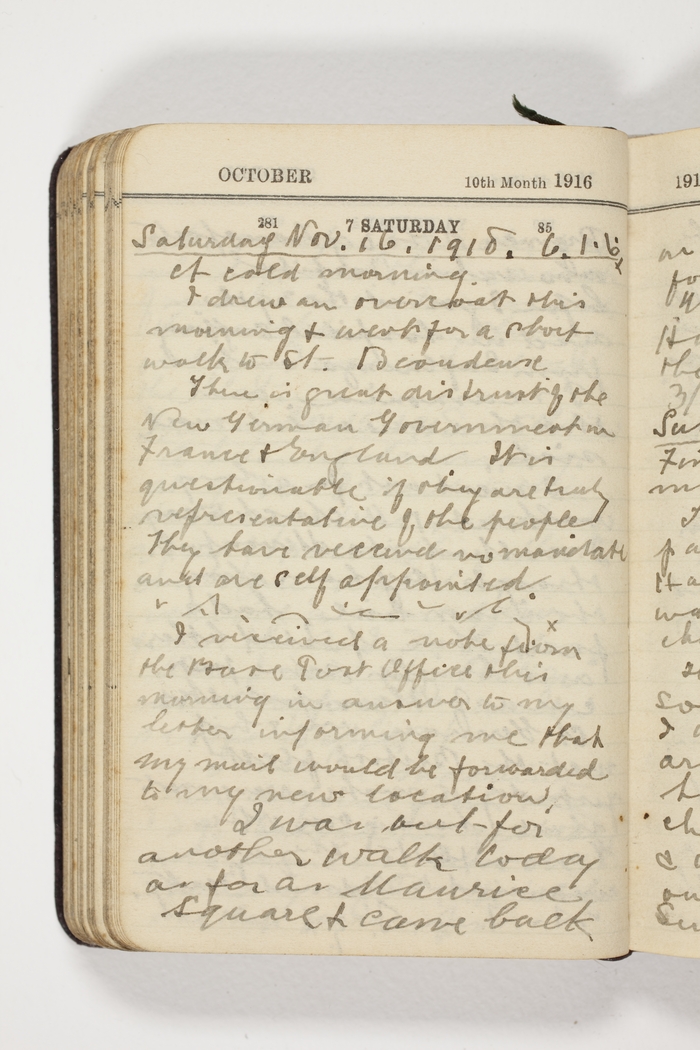 OCTOBER 10th Month 1916
281 7 SATURDAY 85
Saturday Nov. 16. 1918. 6.1.6
A cold morning.
I drew an overcoat this
morning & went for a short
walk to St.
There is great distrust of the
New German Government in
France & England It is
questionable if they are truly
representative of the people
They have received no mandate
and are self appointed.
I received a note from
the Base Post Office this
morning in answer to my
letter informing me that
my mail would be forwarded
to my new location.
I was out for
another walk today
as far as Maurice
Square & came back
191